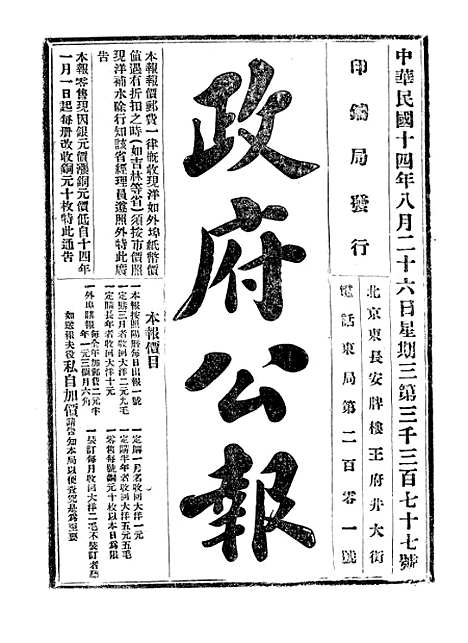 中華民國十四年八月二十六日星期三第三千三百七十七號
印鑄局發行
北京東長安牌樓王府井大街
電話東局第二百零一號
政府公報
本報報價郵費一律概收現洋如外埠紙幣價
值遇有折扣之時(如吉林等省)須按市價照
現洋補水除行知該省經理員遵照外特此廣
告
本報零售現因銀元價漲銅元價低自十四年
一月一日起每册改收銅元十枚特此通告
本報價目
一本報按照陽曆每日出報一號
一定購三月者收回大洋二元九毛
一定購長年者收回大洋十元
一外埠購報每全年加郵費二元半
年一元三個月六角
一定購一月者收回大洋一元
一定購半年者收回大洋五元五毛
一零售每號銅元十枚以本日爲限
一裝訂每月收回大洋二毛不裝訂者聽
如送報夫役私自加價請告知本局以便查究是爲至要